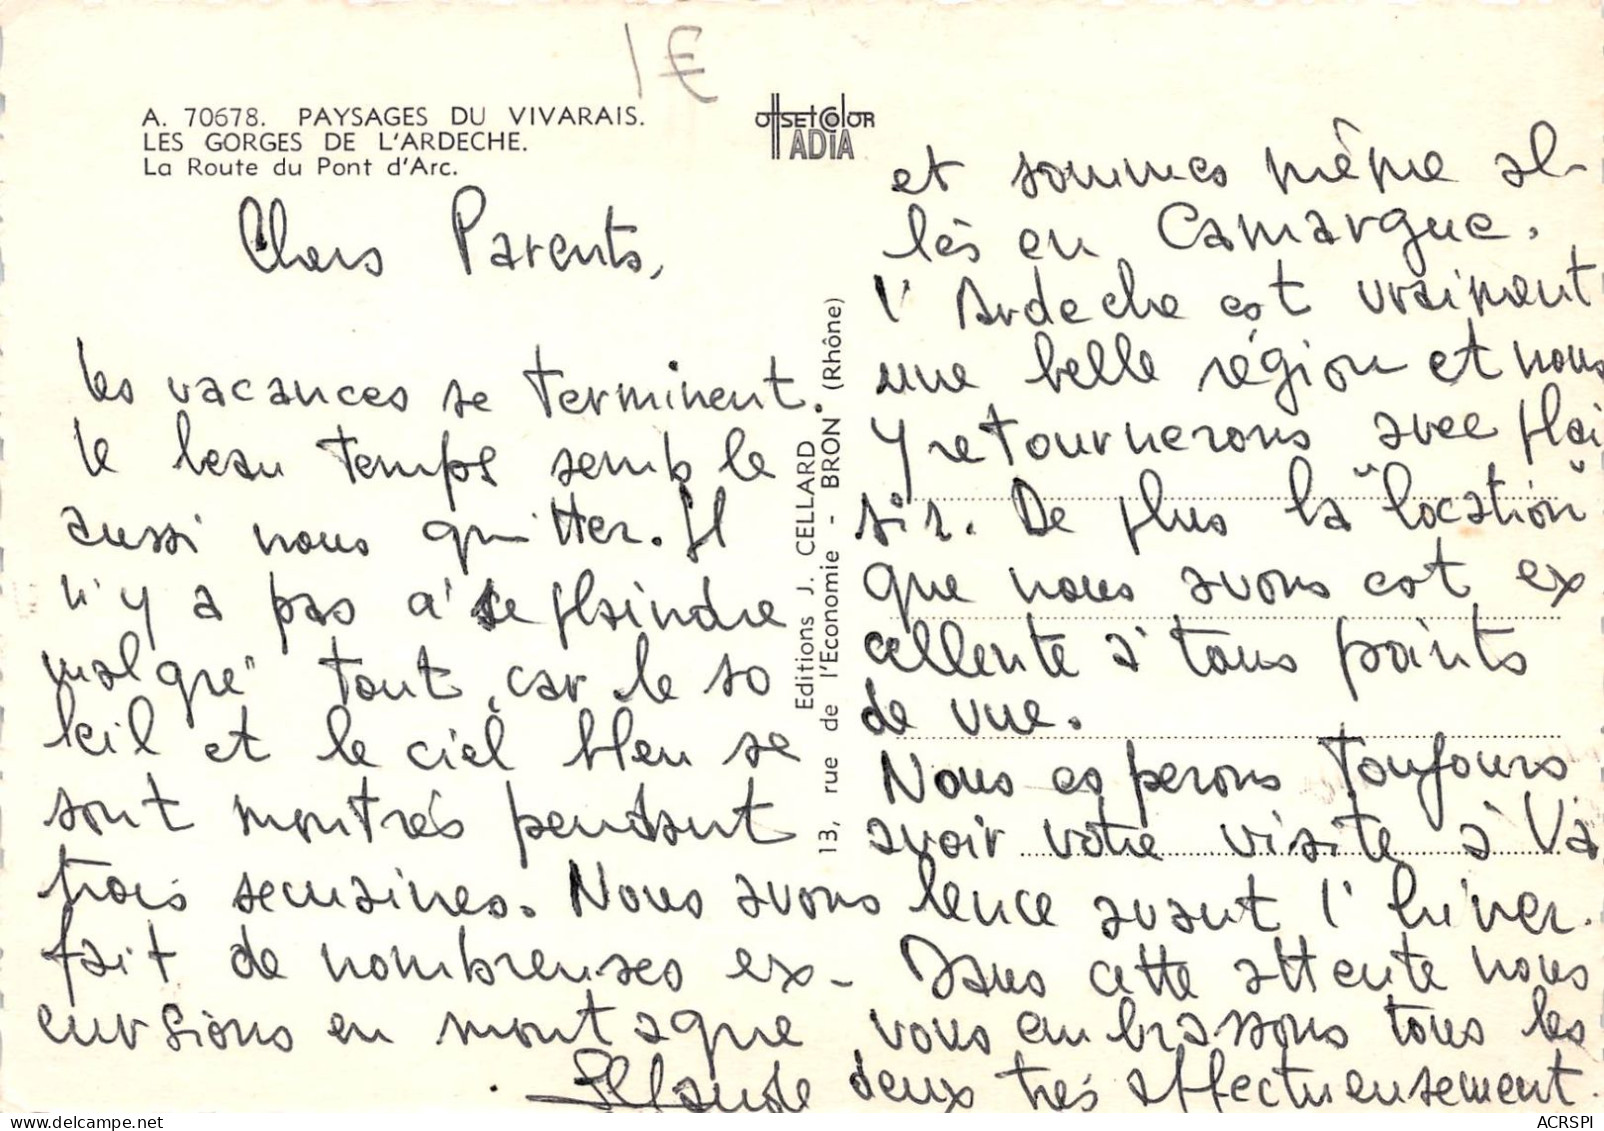 1 €
A. 70678. PAYSAGES DU VIVARAIS.
LES GORGES DE L'ARDECHE.
La Route du Pont d'Arc.
OffsetColor
ADIA
Chers Parents,
les vacances se terminent.
le beau temps semble
aussi nous quitter. Il
n'y a pas à se plaindre
malgré tout, car le so
leil et le ciel bleu se
sont montrés pendant
trois semaines. Nous avons
fait de nombreuses ex-
cursions en montagne
Editions J. CELLARD
13, rue de l'Economie - BRON (Rhône)
et sommes même al-
lés en Camargue.
l'Ardeche est vraiment
une belle région et nous
y retournerons avec plai
sir. De plus la "location"
que nous avons est ex
cellente à tous points
de vue.
Nous esperons toujours
avoir votre visite à Va
lence avant l'hiver.
Dans cette attente nous
vous embrassons tous les
deux très affectueusement.
Claude
ACRSPI